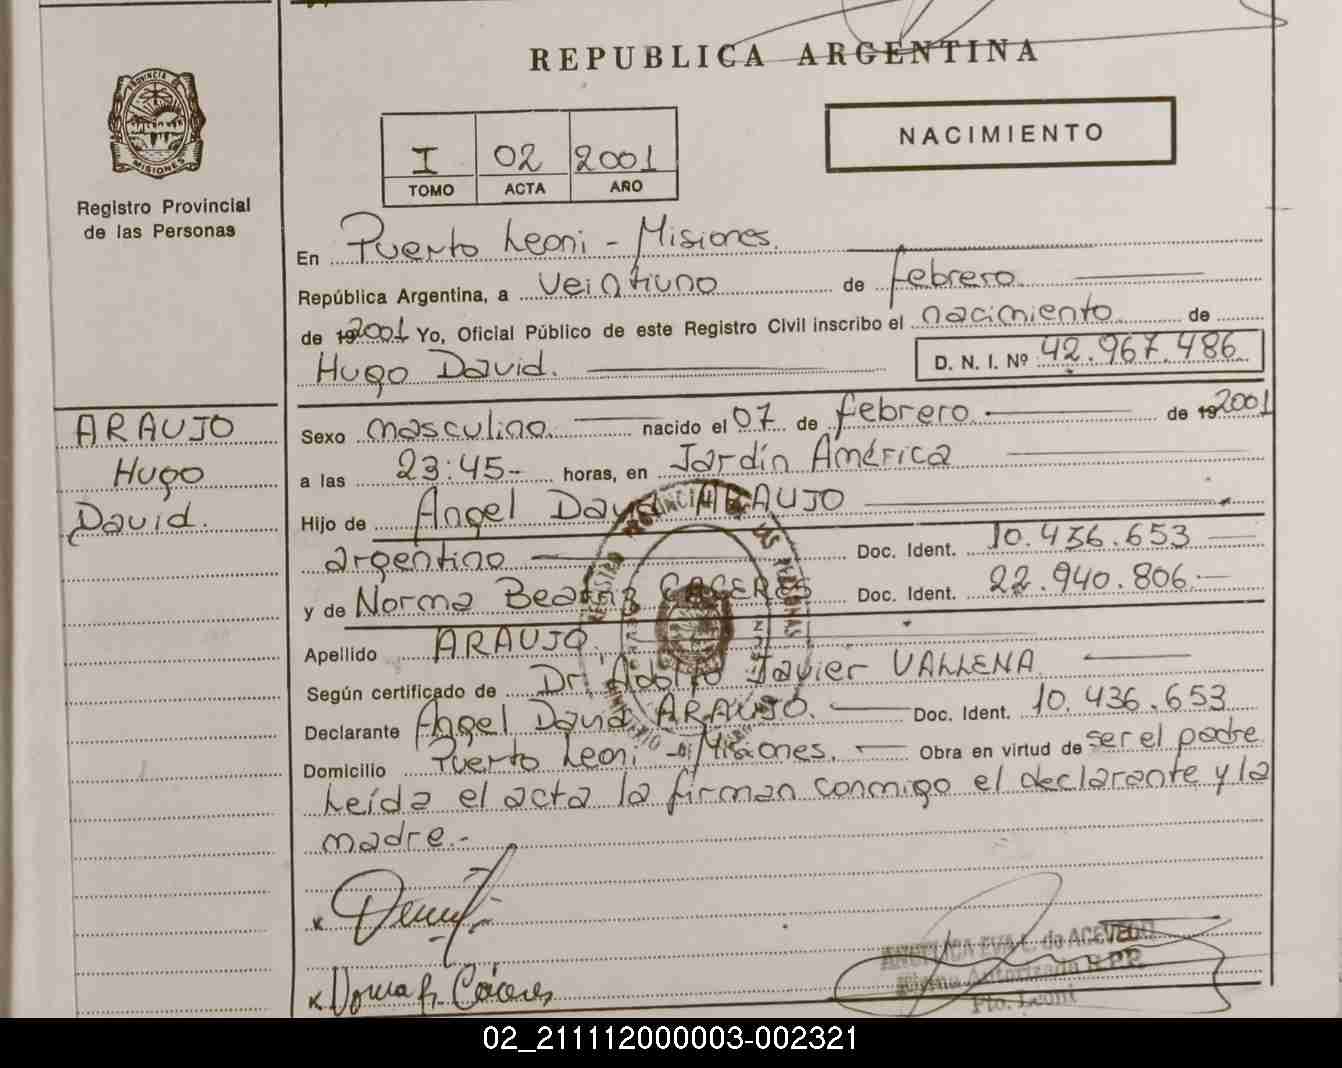 REPUBLICA ARGENTINA
PROVINCIA DE MISIONES
Registro Provincial
de las Personas
I 02 2001
TOMO ACTA AÑO
NACIMIENTO
En Puerto Leoni - Misiones.
República Argentina, a veintiuno de febrero
de 192001 Yo, Oficial Público de este Registro Civil inscribo el nacimiento de
Hugo David. D. N. I. Nº 42.967.486
ARAUJO
Hugo
David.
Sexo masculino nacido el 07 de febrero de 192001
a las 23:45- horas, en Jardín América
Hijo de Angel David ARAUJO
argentino Doc. Ident. 10.436.653
y de Norma Beatriz CACERES Doc. Ident. 22.940.806
Apellido ARAUJO.
Según certificado de Dr. Adolfo Javier VALLENA
Declarante Angel David ARAUJO. Doc. Ident. 10.436.653
Domicilio Puerto Leoni - Misiones. Obra en virtud de ser el padre
Leída el acta la firman conmigo el declarante y la
madre.-
x
x Norma B. Cáceres
REGISTRO PROVINCIAL DE LAS PERSONAS
ANGELICA EVA C. de ACEVEDO
Firma Autorizada R.P.P.
Pto. Leoni
02_211112000003-002321